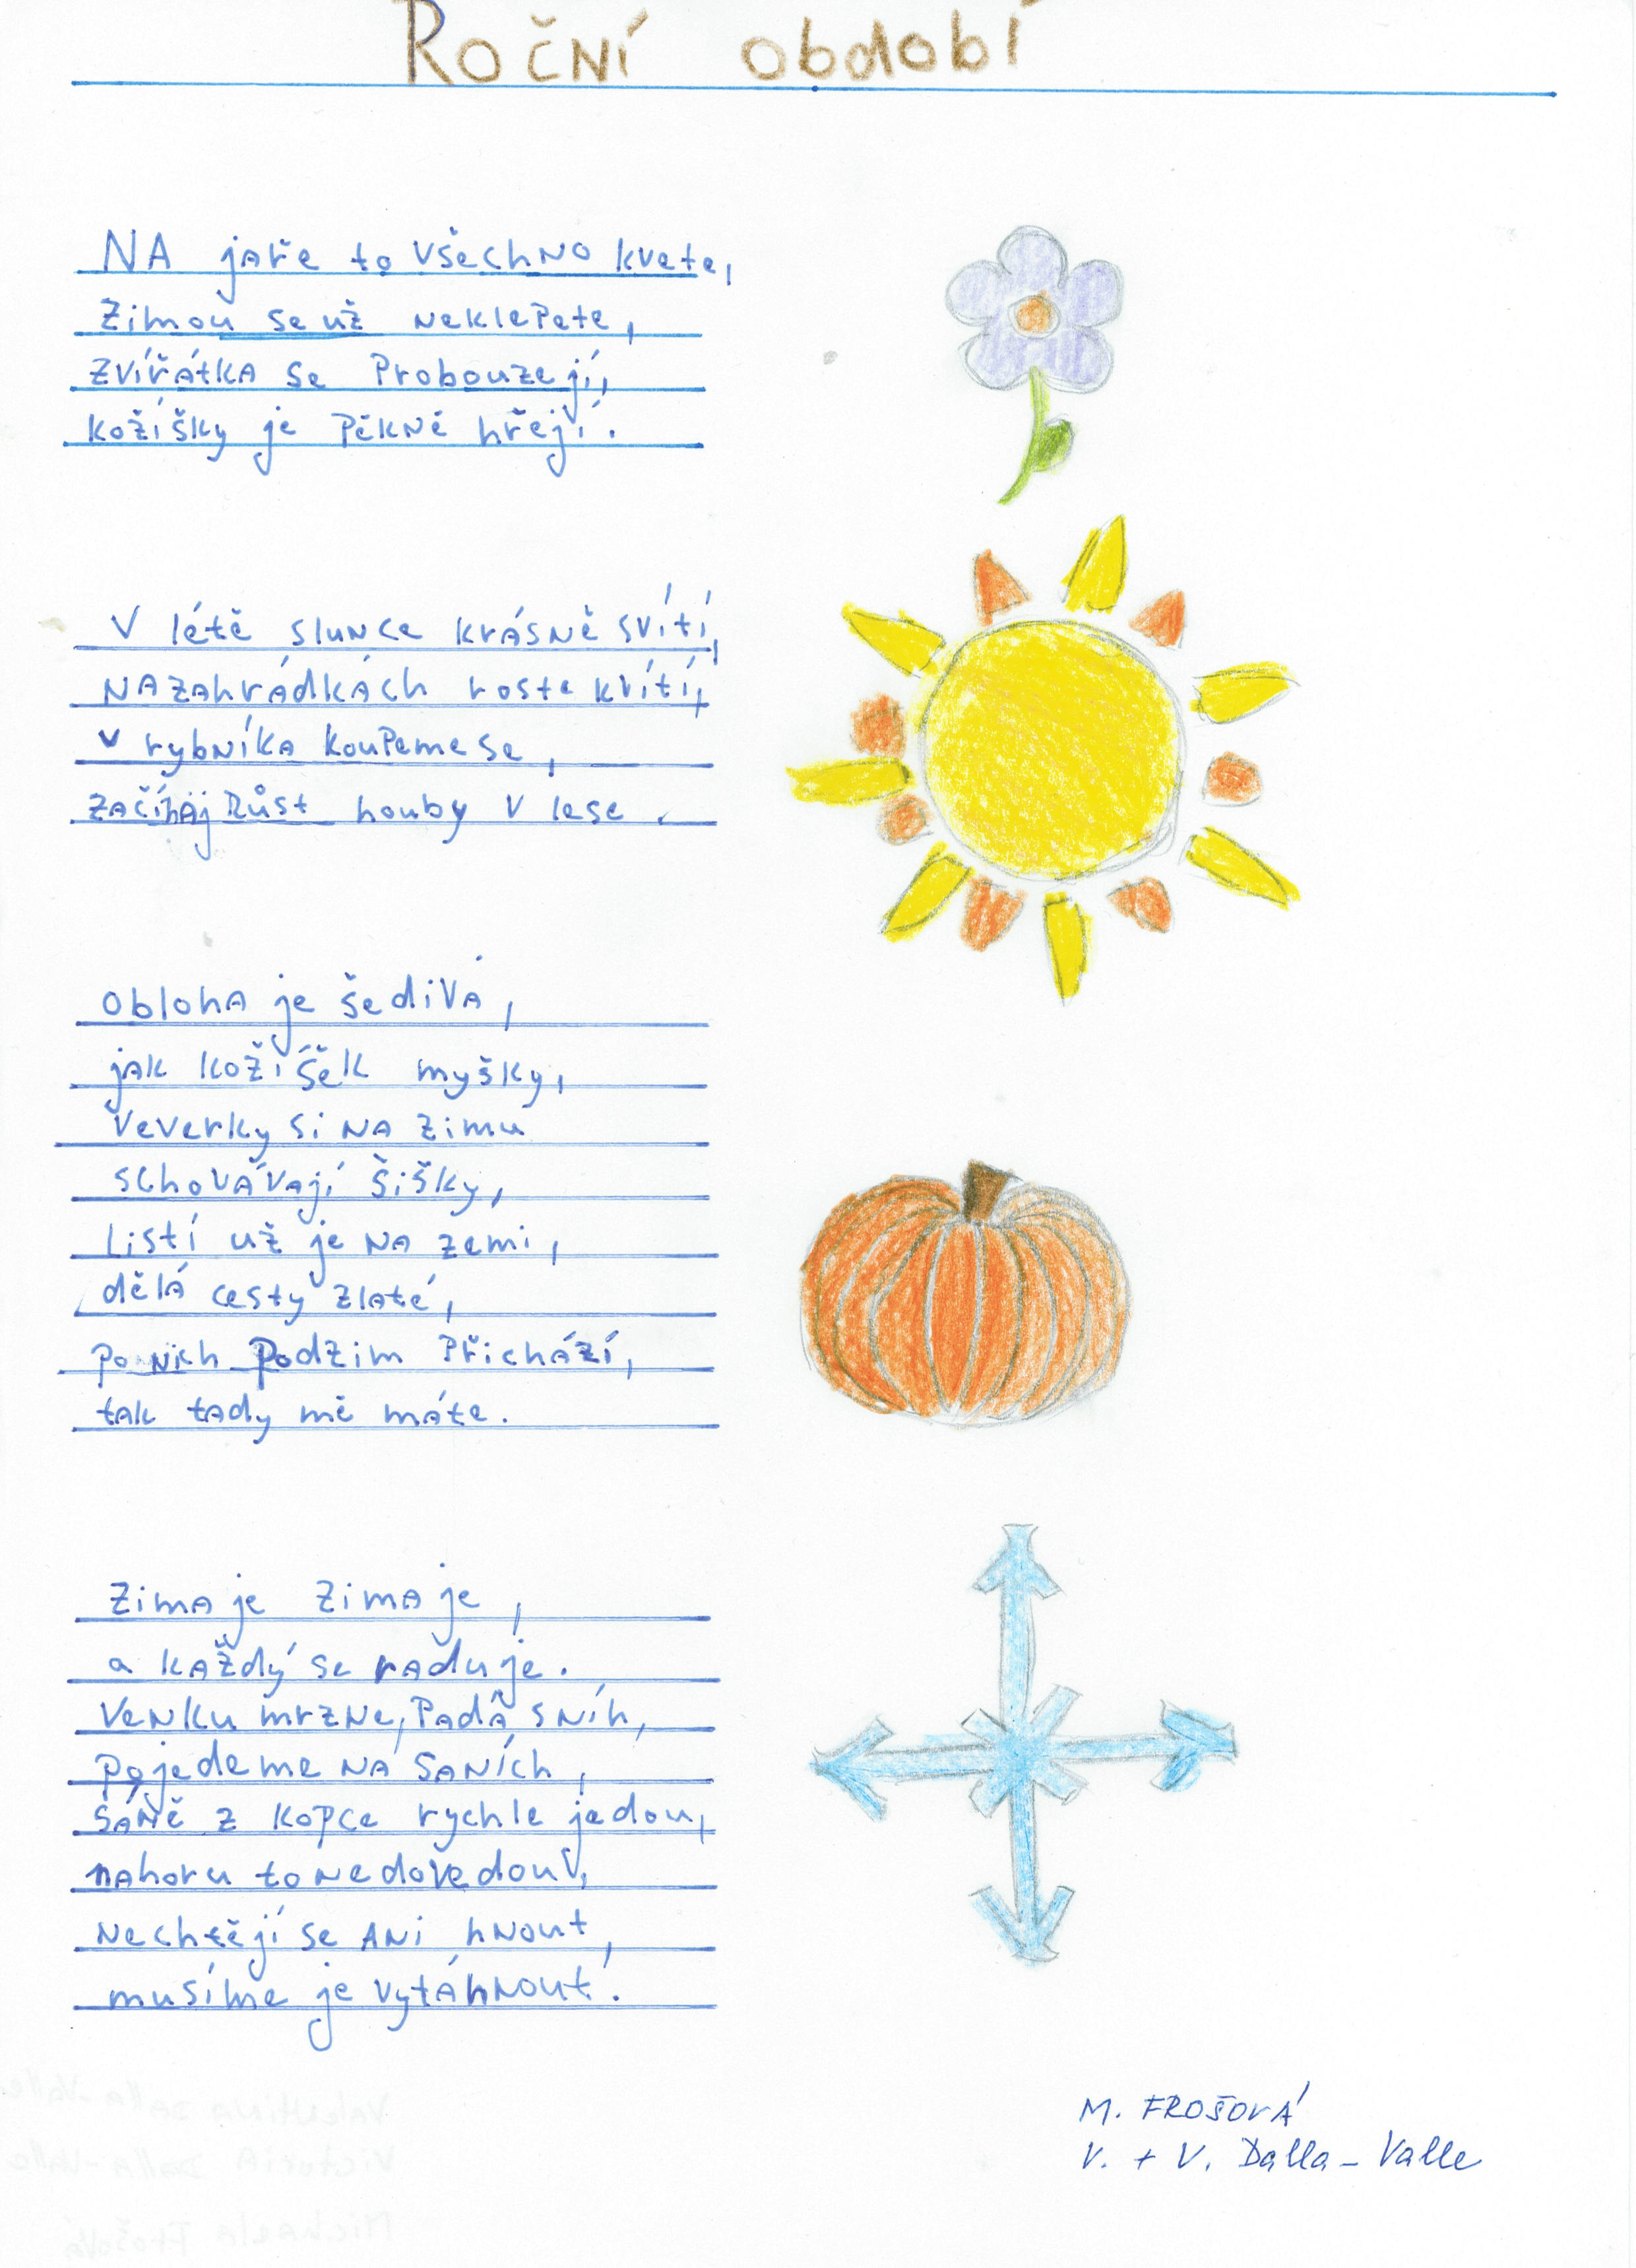 Roční období
NA jaře to všechno kvete,
Zimou se už neklepete,
zvířátka se Probouzejí,
kožíšky je Pěkně hřejí.
V létě slunce krásně svítí,
NA zahrádkách roste kvítí,
v rybníka koupeme se,
začínaj Růst houby v lese.
Obloha je šedivá,
jak kožíšek myšky,
Veverky si NA zimu
schovávají šišky,
Listí už je NA zemi,
dělá cesty zlaté,
po nich podzim Přichází,
tak tady mě máte.
Zima je Zima je,
a každý se raduje.
Venku mrzne, Padá sníh,
pojedeme NA saních,
Sáně z kopce rychle jedou,
nahoru to nedovedou,
Nechtějí se ANi hnout,
musíme je vytáhnout.
M. FROŠOVÁ
V. + V. Dalla-Valle
Valentina Dalla-Valle
Victoria Dalla-Valle
Michaela Frošová